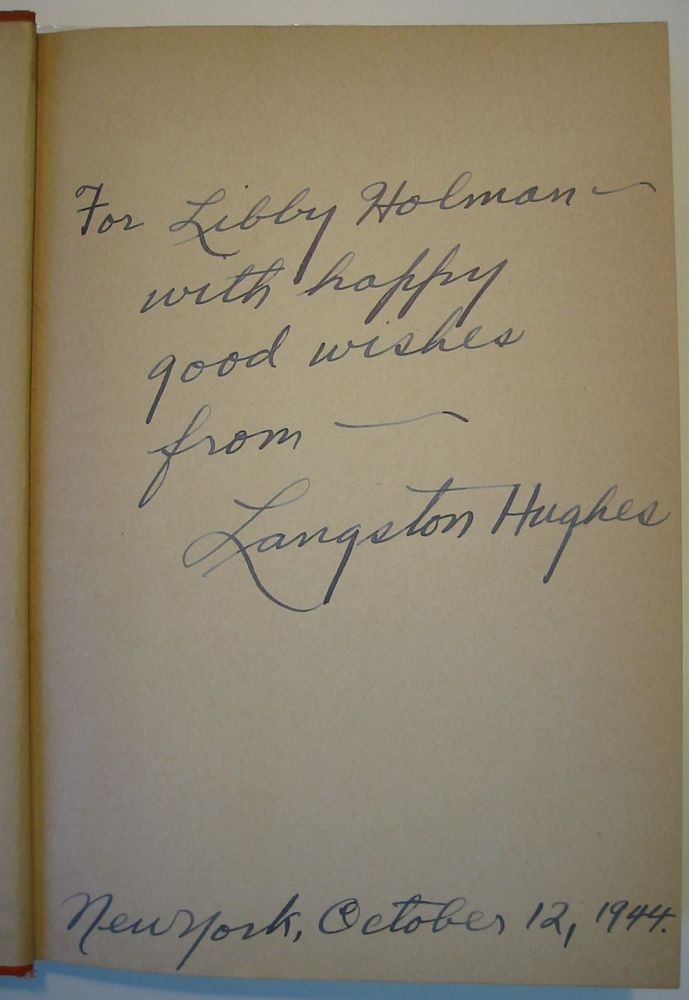 For Libby Holman—
with happy
good wishes
from —
Langston Hughes
New York, October 12, 1944.